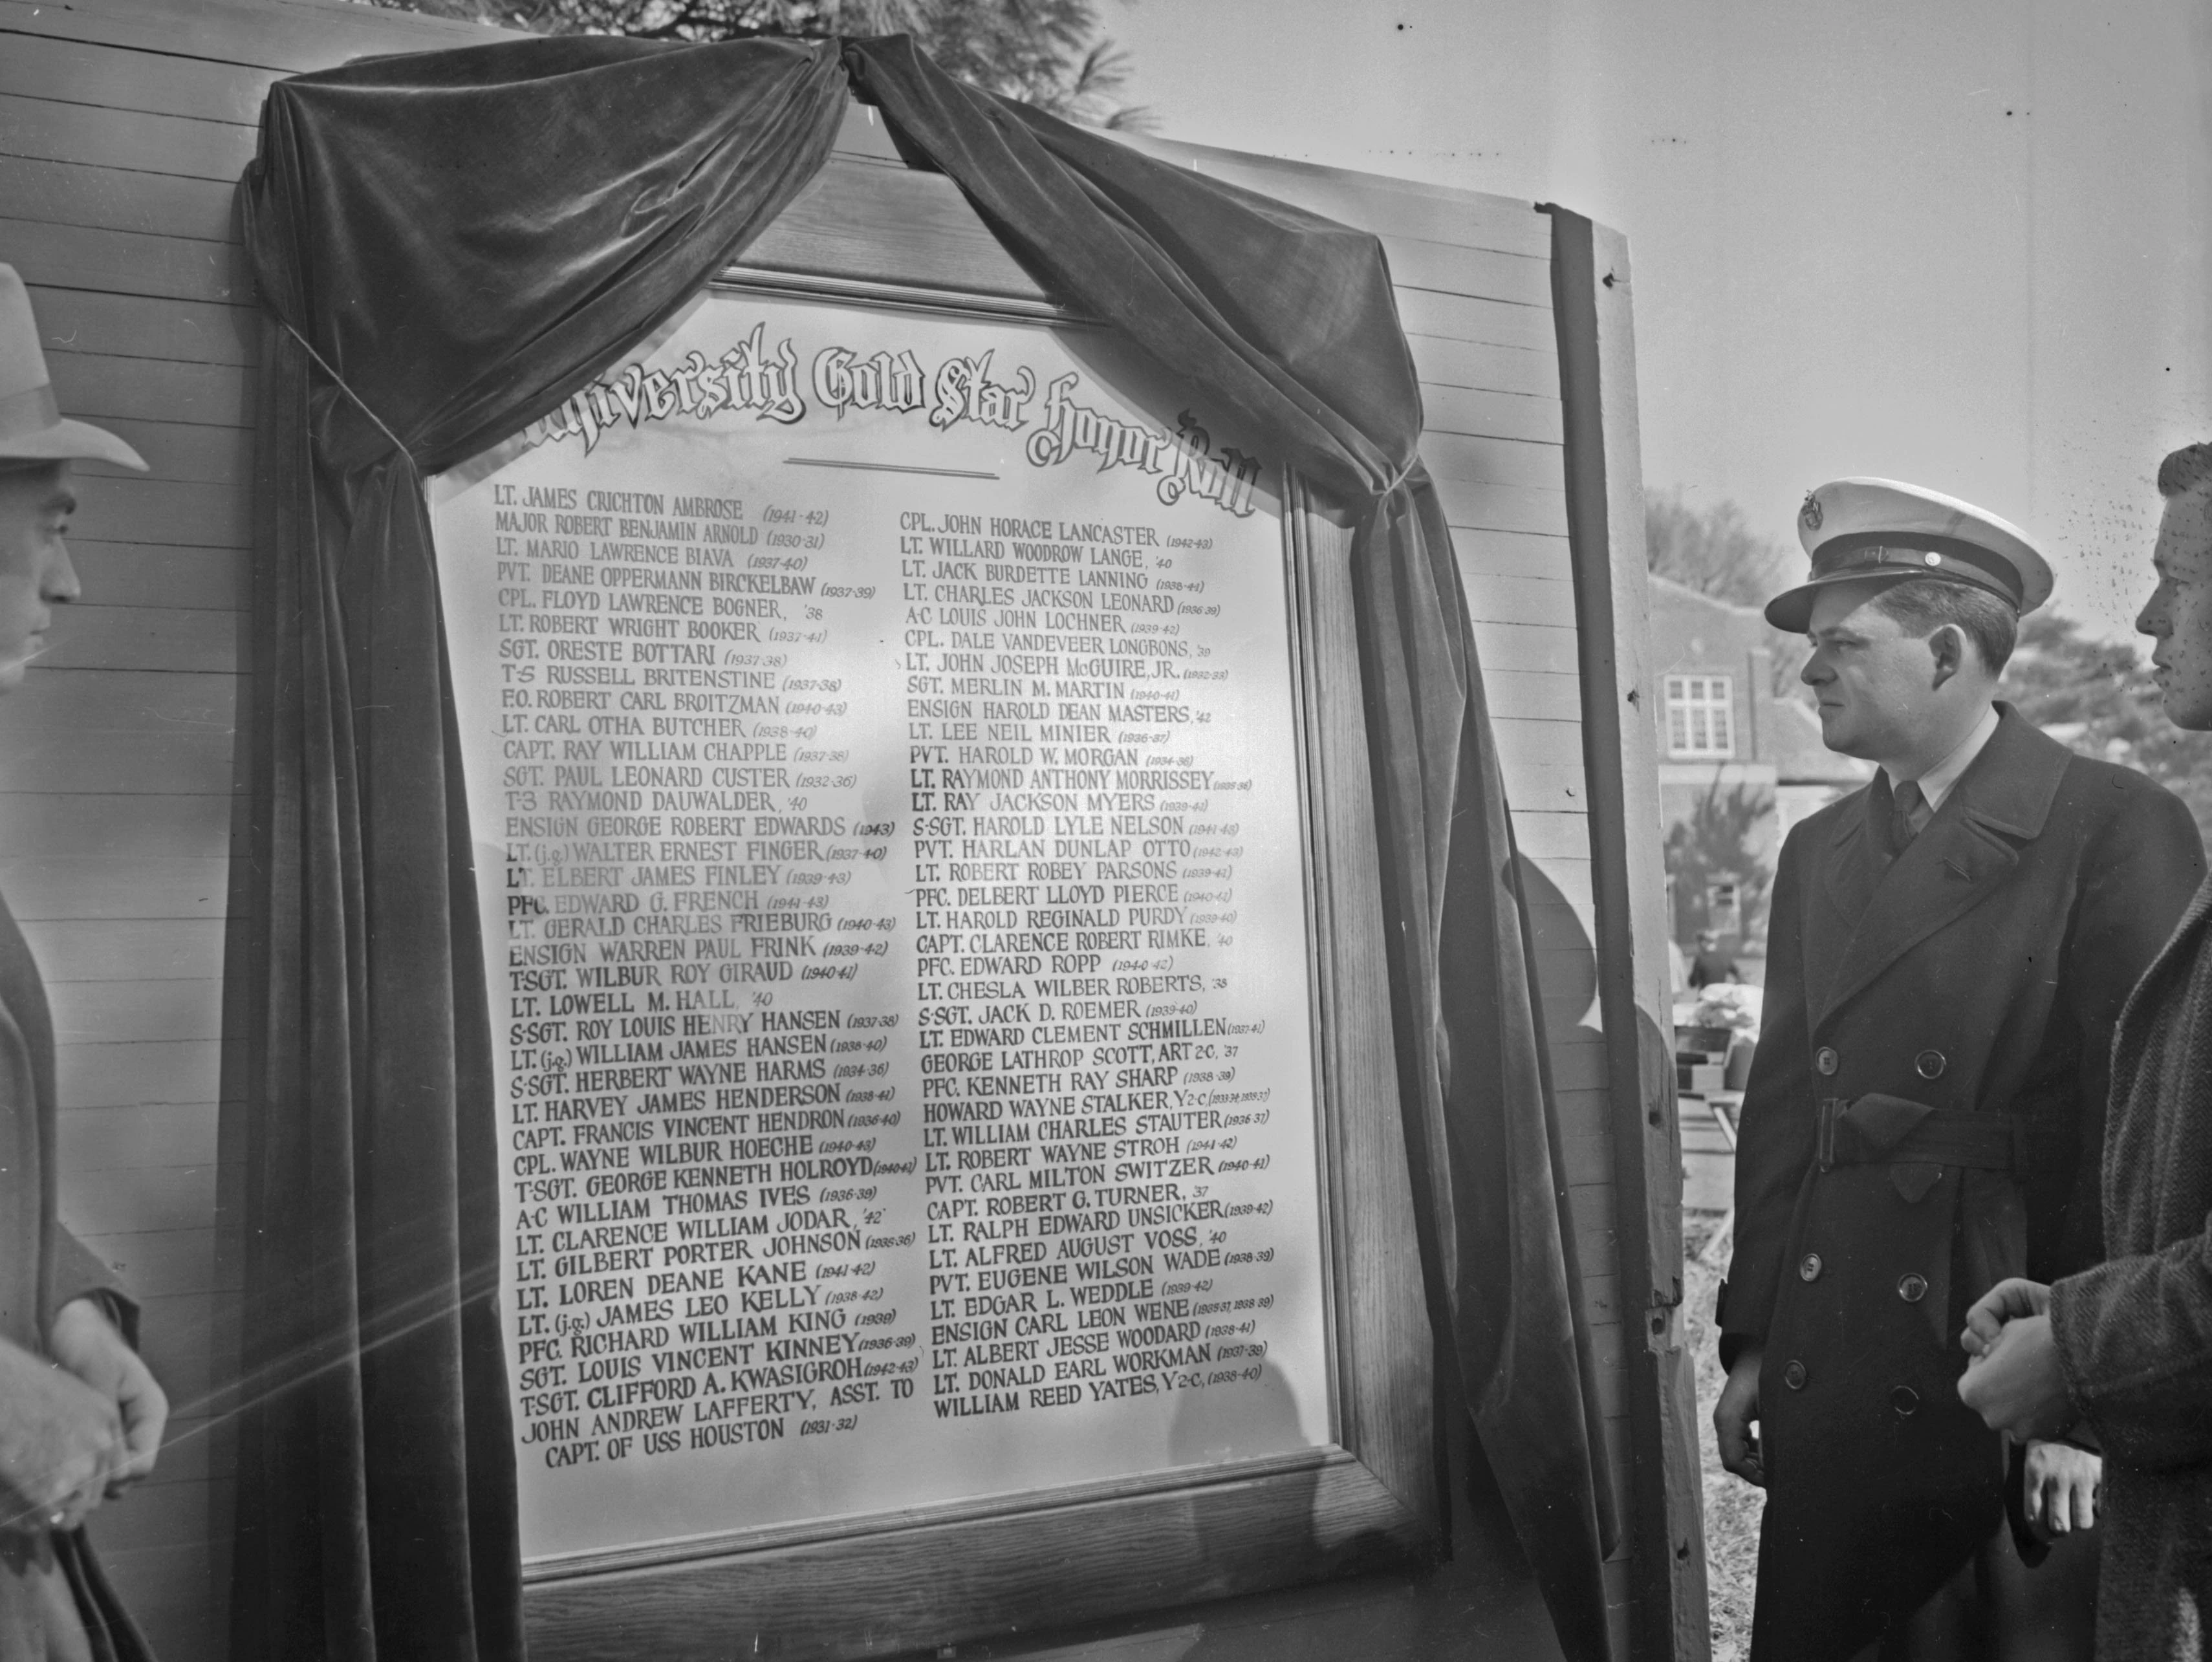 University Gold Star Honor Roll
LT. JAMES CRICHTON AMBROSE (1941-42)
MAJOR ROBERT BENJAMIN ARNOLD (1930-31)
LT. MARIO LAWRENCE BIAVA (1937-40)
PVT. DEANE OPPERMANN BIRCKELBAW (1937-39)
CPL. FLOYD LAWRENCE BOGNER, '38
LT. ROBERT WRIGHT BOOKER (1937-41)
SGT. ORESTE BOTTARI (1937-38)
T-5 RUSSELL BRITENSTINE (1937-38)
F.O. ROBERT CARL BROITZMAN (1940-43)
LT. CARL OTHA BUTCHER (1938-40)
CAPT. RAY WILLIAM CHAPPLE (1937-38)
SGT. PAUL LEONARD CUSTER (1932-36)
T-3 RAYMOND DAUWALDER, '40
ENSIGN GEORGE ROBERT EDWARDS (1943)
LT. (j.g.) WALTER ERNEST FINGER (1937-40)
LT. ELBERT JAMES FINLEY (1939-43)
PFC. EDWARD G. FRENCH (1941-43)
LT. GERALD CHARLES FRIEBURG (1940-43)
ENSIGN WARREN PAUL FRINK (1939-42)
T-SGT. WILBUR ROY GIRAUD (1940-41)
LT. LOWELL M. HALL, '40
S-SGT. ROY LOUIS HENRY HANSEN (1937-38)
LT. (j.g.) WILLIAM JAMES HANSEN (1938-40)
S-SGT. HERBERT WAYNE HARMS (1934-36)
LT. HARVEY JAMES HENDERSON (1938-41)
CAPT. FRANCIS VINCENT HENDRON (1936-40)
CPL. WAYNE WILBUR HOECHE (1940-43)
T-SGT. GEORGE KENNETH HOLROYD (1940-42)
A-C WILLIAM THOMAS IVES (1936-39)
LT. CLARENCE WILLIAM JODAR, '42
LT. GILBERT PORTER JOHNSON (1935-36)
LT. LOREN DEANE KANE (1941-42)
LT. (j.g.) JAMES LEO KELLY (1938-42)
PFC. RICHARD WILLIAM KING (1939)
SGT. LOUIS VINCENT KINNEY (1936-39)
T-SGT. CLIFFORD A. KWASIGROH (1942-43)
JOHN ANDREW LAFFERTY, ASST. TO
CAPT. OF USS HOUSTON (1931-32)
CPL. JOHN HORACE LANCASTER (1942-43)
LT. WILLARD WOODROW LANGE, '40
LT. JACK BURDETTE LANNING (1938-41)
LT. CHARLES JACKSON LEONARD (1936-39)
A-C LOUIS JOHN LOCHNER (1939-42)
CPL. DALE VANDEVEER LONGBONS, '39
LT. JOHN JOSEPH McGUIRE, JR. (1932-33)
SGT. MERLIN M. MARTIN (1940-41)
ENSIGN HAROLD DEAN MASTERS, '42
LT. LEE NEIL MINIER (1936-37)
PVT. HAROLD W. MORGAN (1934-36)
LT. RAYMOND ANTHONY MORRISSEY
LT. RAY JACKSON MYERS (1939-41)
S-SGT. HAROLD LYLE NELSON (1941-43)
PVT. HARLAN DUNLAP OTTO (1942-43)
LT. ROBERT ROBEY PARSONS (1939-41)
PFC. DELBERT LLOYD PIERCE (1940-42)
LT. HAROLD REGINALD PURDY (1939-40)
CAPT. CLARENCE ROBERT RIMKE, '40
PFC. EDWARD ROPP (1940-42)
LT. CHESLA WILBER ROBERTS, '38
S-SGT. JACK D. ROEMER (1939-40)
LT. EDWARD CLEMENT SCHMILLEN (1937-41)
GEORGE LATHROP SCOTT, ART 2-C, '37
PFC. KENNETH RAY SHARP (1938-39)
HOWARD WAYNE STALKER, Y2-C,
LT. WILLIAM CHARLES STAUTER (1936-37)
LT. ROBERT WAYNE STROH (1941-42)
PVT. CARL MILTON SWITZER (1940-41)
CAPT. ROBERT G. TURNER, '37
LT. RALPH EDWARD UNSICKER (1939-42)
LT. ALFRED AUGUST VOSS, '40
PVT. EUGENE WILSON WADE (1938-39)
LT. EDGAR L. WEDDLE (1939-42)
ENSIGN CARL LEON WENE (1935-37, 1938-39)
LT. ALBERT JESSE WOODARD (1938-41)
LT. DONALD EARL WORKMAN (1937-39)
WILLIAM REED YATES, Y2-C, (1938-40)